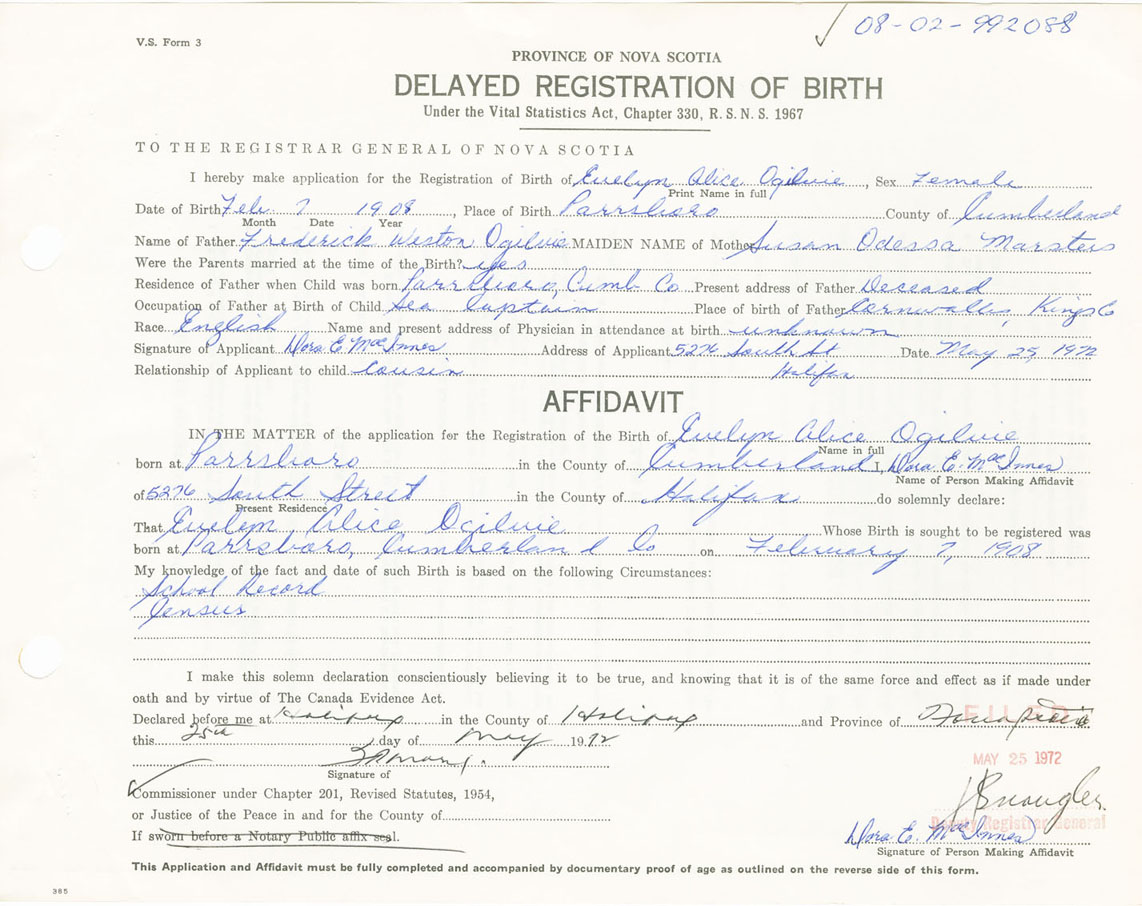 08-02-992088
V.S. Form 3
PROVINCE OF NOVA SCOTIA
DELAYED REGISTRATION OF BIRTH
Under the Vital Statistics Act, Chapter 330, R. S. N. S. 1967
TO THE REGISTRAR GENERAL OF NOVA SCOTIA
I hereby make application for the Registration of Birth of Evelyn Alice Ogilvie, Sex Female
Print Name in full
Date of Birth Feb. 7 1908, Place of Birth Parrsboro County of Cumberland
Month Date Year
Name of Father Frederick Weston Ogilvie MAIDEN NAME of Mother Susan Odessa Marsters
Were the Parents married at the time of the Birth? yes
Residence of Father when Child was born Parrsboro, Cumb Co Present address of Father Deceased
Occupation of Father at Birth of Child Sea Captain Place of birth of Father Cornwallis, Kings Co
Race English Name and present address of Physician in attendance at birth unknown
Signature of Applicant Dora E. MacInnes Address of Applicant 5276 South St Date May 25, 1972
Relationship of Applicant to child Cousin Halifax
AFFIDAVIT
IN THE MATTER of the application for the Registration of the Birth of Evelyn Alice Ogilvie
Name in full
born at Parrsboro in the County of Cumberland I, Dora E. MacInnes
Name of Person Making Affidavit
of 5276 South Street in the County of Halifax do solemnly declare:
Present Residence
That Evelyn Alice Ogilvie Whose Birth is sought to be registered was
born at Parrsboro, Cumberland Co on February 7, 1908
My knowledge of the fact and date of such Birth is based on the following Circumstances:
School Record
Census
I make this solemn declaration conscientiously believing it to be true, and knowing that it is of the same force and effect as if made under
oath and by virtue of The Canada Evidence Act.
Declared before me at Halifax in the County of Halifax and Province of Nova Scotia
FILED
this 25th day of May 1972
MAY 25 1972
Signature of
Commissioner under Chapter 201, Revised Statutes, 1954,
or Justice of the Peace in and for the County of
Deputy Registrar General
If sworn before a Notary Public affix seal.
Dora E. MacInnes
Signature of Person Making Affidavit
This Application and Affidavit must be fully completed and accompanied by documentary proof of age as outlined on the reverse side of this form.
385